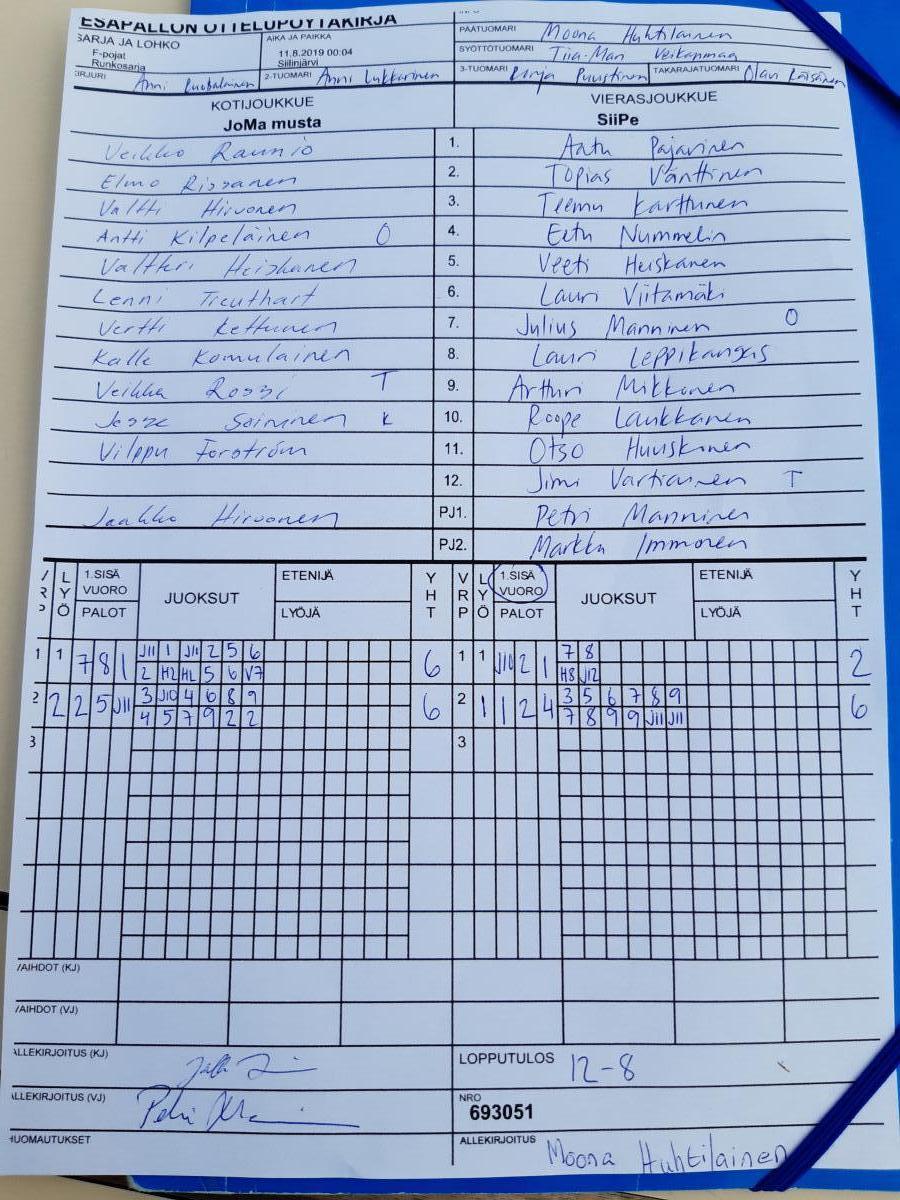 ESÄPALLON OTTELUPÖYTÄKIRJA
SARJA JA LOHKO
F-pojat
Runkosarja
AIKA JA PAIKKA
11.8.2019 00:04
Siilinjärvi
PÄÄTUOMARI Moona Huhtilainen
SYÖTTÖTUOMARI Tiia-Mari
KIRJURI Anni
2-TUOMARI Anni Lukkarinen
3-TUOMARI Puustinen TAKARAJATUOMARI Olavi Räisänen
KOTIJOUKKUE
JoMa musta
VIERASJOUKKUE
SiiPe
Veikko Raunio 1. Aatu Pajarinen
Elmo Rissanen 2. Topias Vänttinen
Valtti Hirvonen 3. Teemu Karttunen
Antti Kilpeläinen O 4. Eetu Nummelin
Valtteri Heiskanen 5. Veeti Heiskanen
Lenni Treuthart 6. Lauri Viitamäki
Vertti Kettunen 7. Julius Manninen O
Kalle Komulainen 8. Lauri Leppikangas
Veikka Rossi T 9. Arthuri Mikkonen
Jesse Soininen K 10. Roope Laukkanen
Vilppu Forström 11. Otso Huuskonen
12. Jimi Vartiainen T
Jaakko Hirvonen PJ1. Petri Manninen
PJ2. Markku Immonen
VRP LYÖ 1.SISÄ VUORO PALOT JUOKSUT ETENIJÄ LYÖJÄ YHT VRP LYÖ 1.SISÄ VUORO PALOT JUOKSUT ETENIJÄ LYÖJÄ YHT
1 1 7 8 1 J11 1 J11 2 5 6 6 1 1 J10 2 1 7 8 2
2 H2 H2 5 6 V7 H8 J12
2 2 2 5 J11 3 J10 4 6 8 9 6 2 1 1 2 4 3 5 6 7 8 9 6
4 5 7 9 2 2 7 8 9 9 J11 J11
3 3
VAIHDOT (KJ)
VAIHDOT (VJ)
ALLEKIRJOITUS (KJ)
LOPPUTULOS 12-8
ALLEKIRJOITUS (VJ) Petri
NRO
693051
HUOMAUTUKSET
ALLEKIRJOITUS Moona Huhtilainen